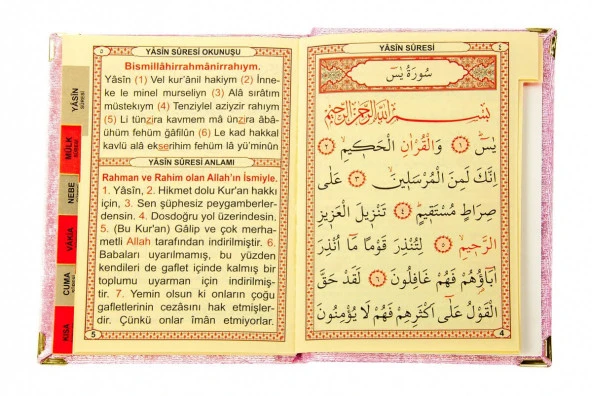 ٤
YÂSİN SÛRESİ
سُورَةُ يٰسٓ
بِسْمِ اللّٰهِ الرَّحْمٰنِ الرَّحِيمِ
يٰسٓ ﴿١﴾ وَالْقُرْاٰنِ الْحَكِيمِ ﴿٢﴾
اِنَّكَ لَمِنَ الْمُرْسَلِينَ ﴿٣﴾ عَلٰى
صِرَاطٍ مُسْتَقِيمٍ ﴿٤﴾ تَنْزِيلَ الْعَزِيزِ
الرَّحِيمِ ﴿٥﴾ لِتُنْذِرَ قَوْمًا مَٓا اُنْذِرَ
اٰبَٓاؤُهُمْ فَهُمْ غَافِلُونَ ﴿٦﴾ لَقَدْ حَقَّ
الْقَوْلُ عَلٰٓى اَكْثَرِهِمْ فَهُمْ لَا يُؤْمِنُونَ
4
٥
YÂSİN SÛRESİ OKUNUŞU
Bismillâhirrahmânirrahıym.
Yâsîn (1) Vel kur'ânil hakiym (2) İnne-
ke le minel murseliyn (3) Alâ sırâtım
müstekıym (4) Tenziylel aziyzir rahıym
(5) Li tünzira kavmem mâ ünzira âbâ-
ühüm fehüm ğâfilûn (6) Le kad hakkal
kavlü alâ ekserihim fehüm lâ yü'minûn
YÂSİN SÛRESİ ANLAMI
Rahman ve Rahim olan Allah'ın İsmiyle.
1. Yâsîn, 2. Hikmet dolu Kur'an hakkı
için, 3. Sen şüphesiz peygamberler-
densin. 4. Dosdoğru yol üzerindesin.
5. (Bu Kur'an) Gâlip ve çok merha-
metli Allah tarafından indirilmiştir. 6.
Babaları uyarılmamış, bu yüzden
kendileri de gaflet içinde kalmış bir
toplumu uyarman için indirilmiş-
tir. 7. Yemin olsun ki onların çoğu
gafletlerinin cezasını hak etmişler-
dir. Çünkü onlar îmân etmiyorlar.
5
YÂSİN
SÛRESİ
MÜLK
SÛRESİ
NEBE
VAKIA
CUMA
SÛRESİ
KISA